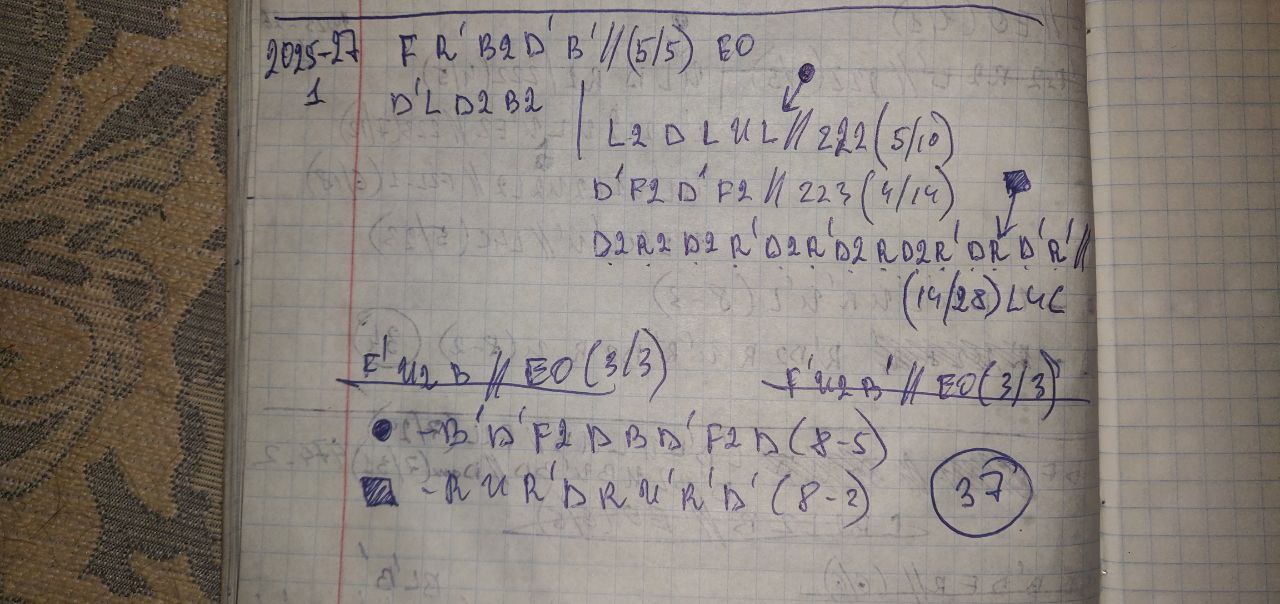 2025-27 F R' B2 D' B' // (5/5) EO
1 D' L D2 B2
L2 D L U L // 222 (5/10)
D' F2 D' F2 // 223 (4/14)
D2 R2 D2 R' D2 R' D2 R D2 R' D R' D' R' //
(14/28) L4C
F' U2 B // EO (3/3) F' U2 B' // EO (3/3)
● - B' D' F2 D B D' F2 D (8-5)
■ - R U R' D R U' R' D' (8-2) 37
BL'B'